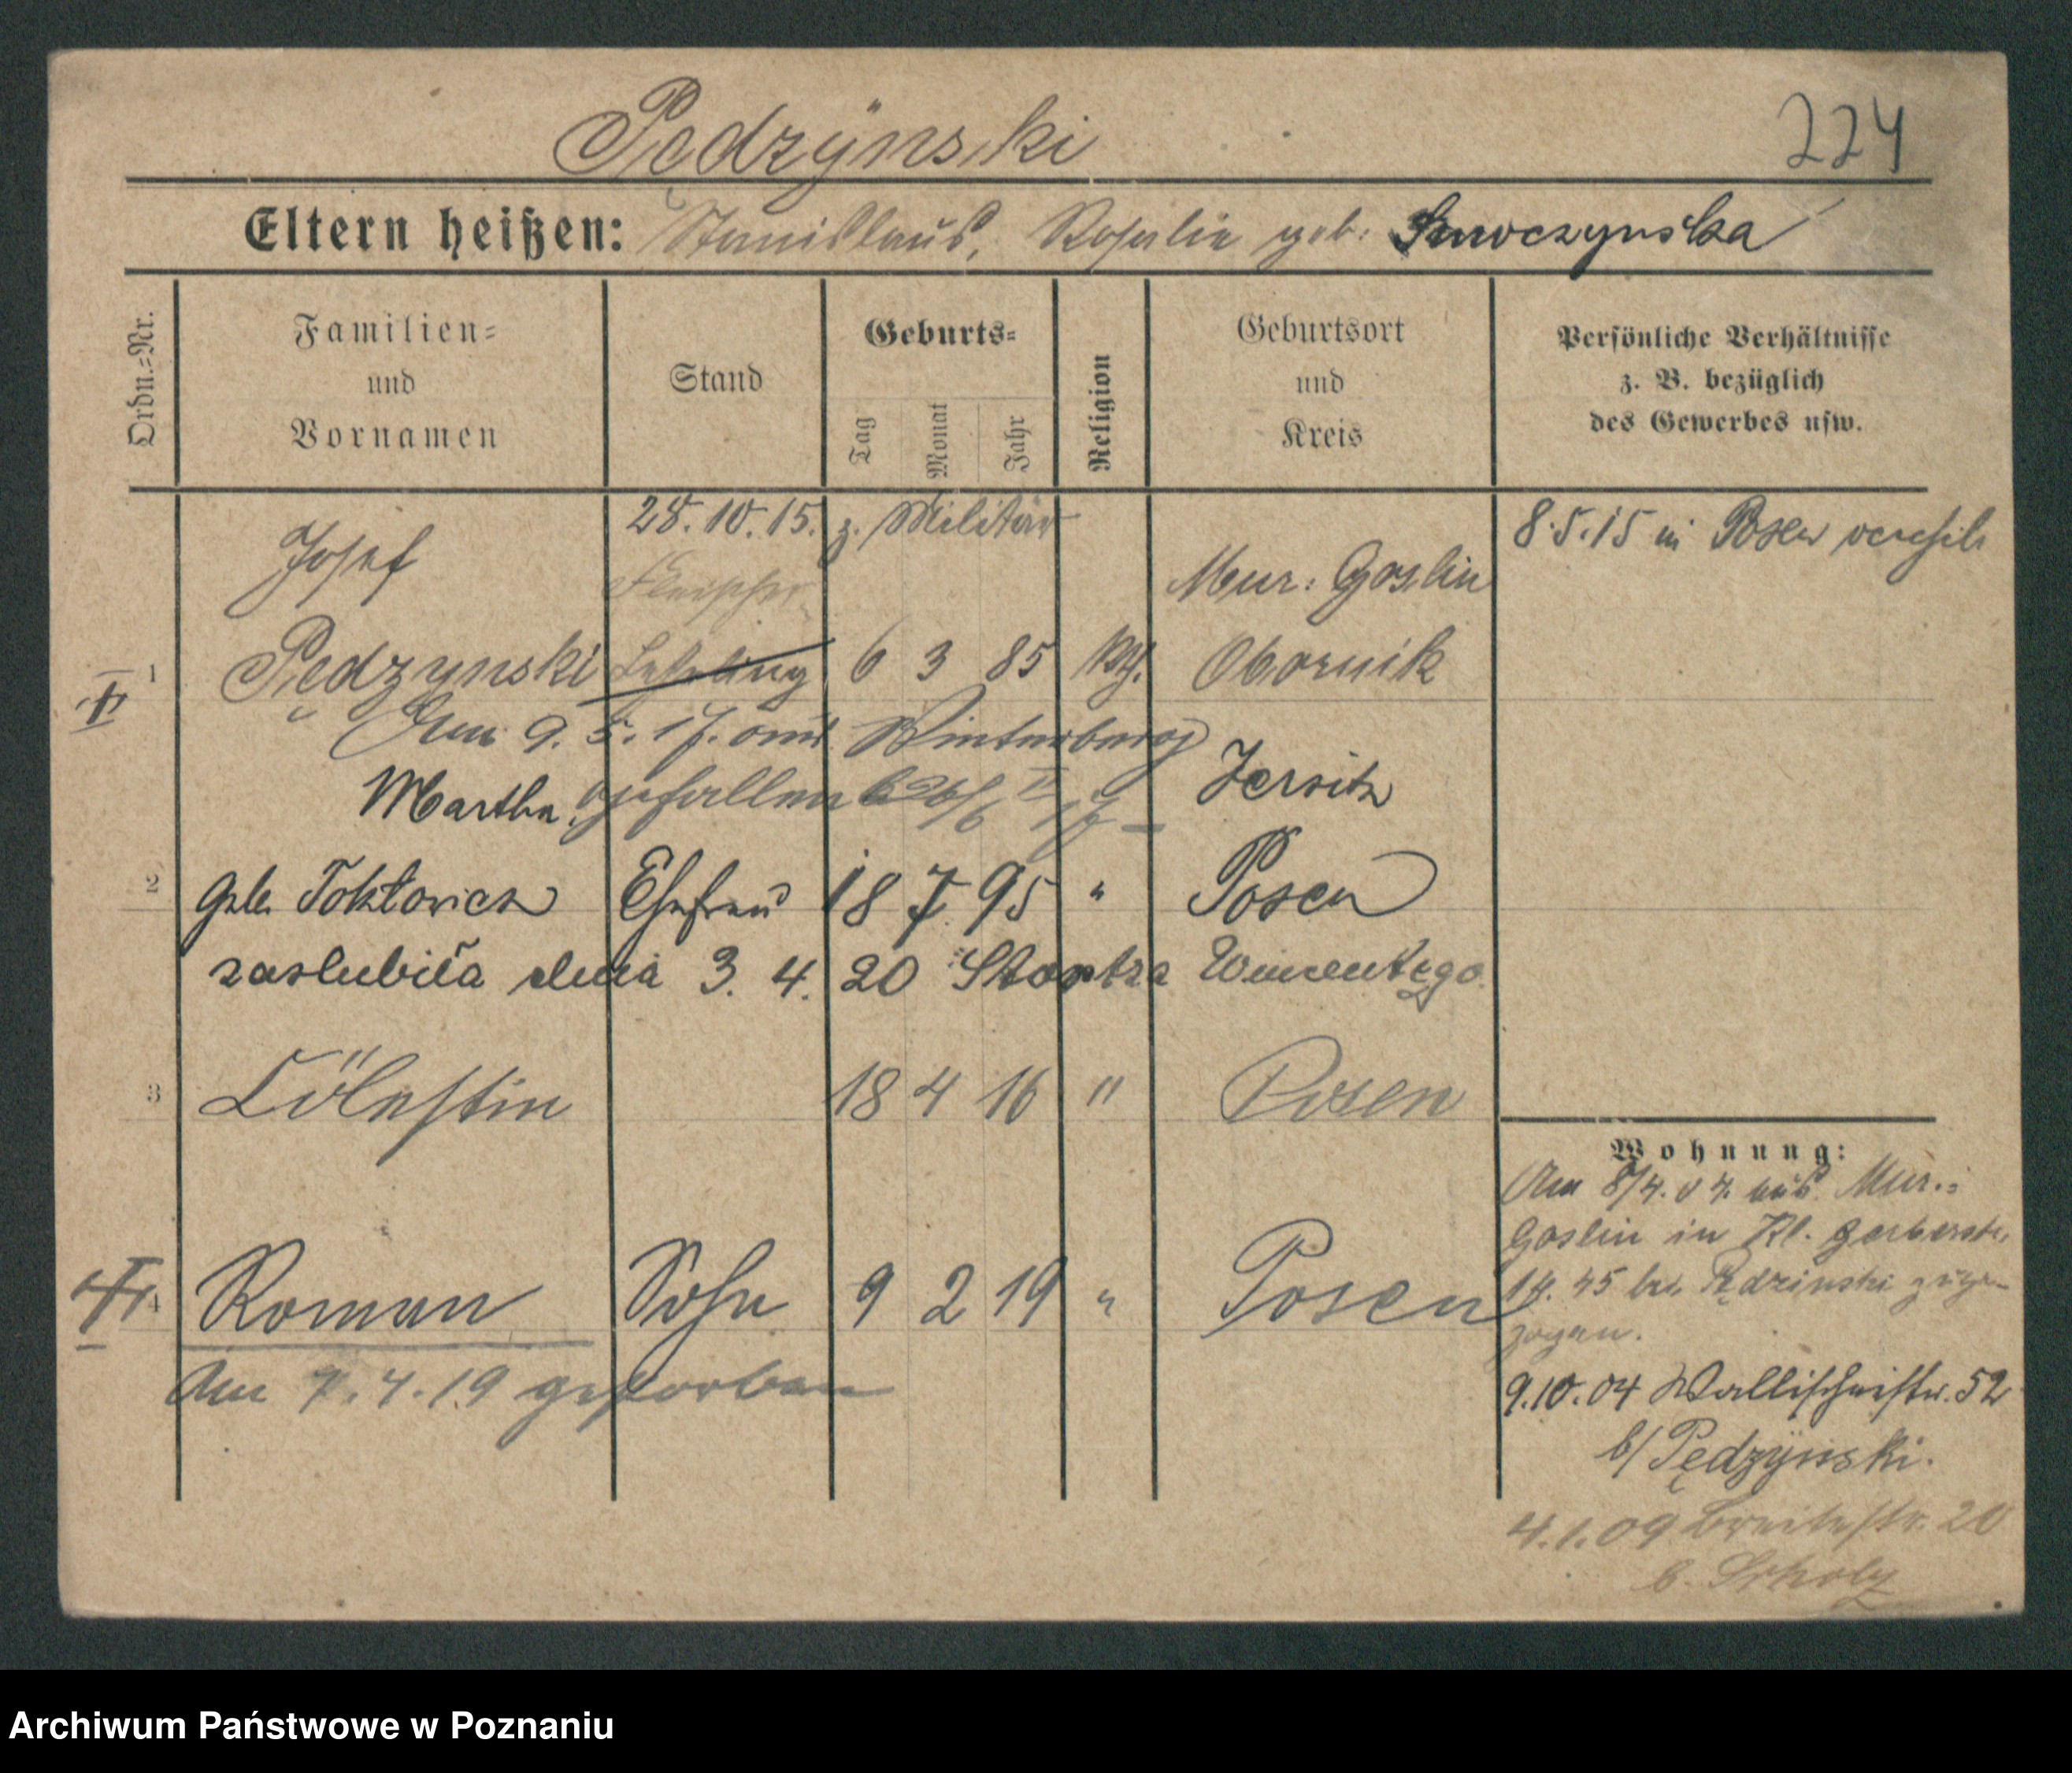 Pędzÿnski
224
Eltern heißen: Stanislaus, Rosalie geb.
Ordn.=Nr.
Familien= und Vornamen
Stand
Geburts=
Tag
Monat
Jahr
Religion
Geburtsort und Kreis
Persönliche Verhältnisse
z. B. bezüglich
des Gewerbes usw.
28.10.15. z. Militär
8.5.15 in Posen verehel.
Josef
Fleischer
Mur: Goslin
1
Pędzynski Lehrling 6 3 85 kth. Obornik
Am 9. 5. 17. am Winterberg
Martha gefallen
Jersitz
2
geb. Ehefrau 18 7 95 " Posen
zaslubiła dnia 3. 4. 20
3
Cölestin 18 4 16 " Posen
Wohnung:
Am 8/4. 04. aus Mur.:
Goslin in Kl. Gerberstr.
bei Pędzinski zuge-
zogen.
4
Roman Sohn 9 2 19 " Posen
Am 7.4.19 gestorben
9.10.04 Wallischeistr. 52
b/ Pędzÿnski.
4.1.09 Breitestr. 20
b. Scholz
Archiwum Państwowe w Poznaniu